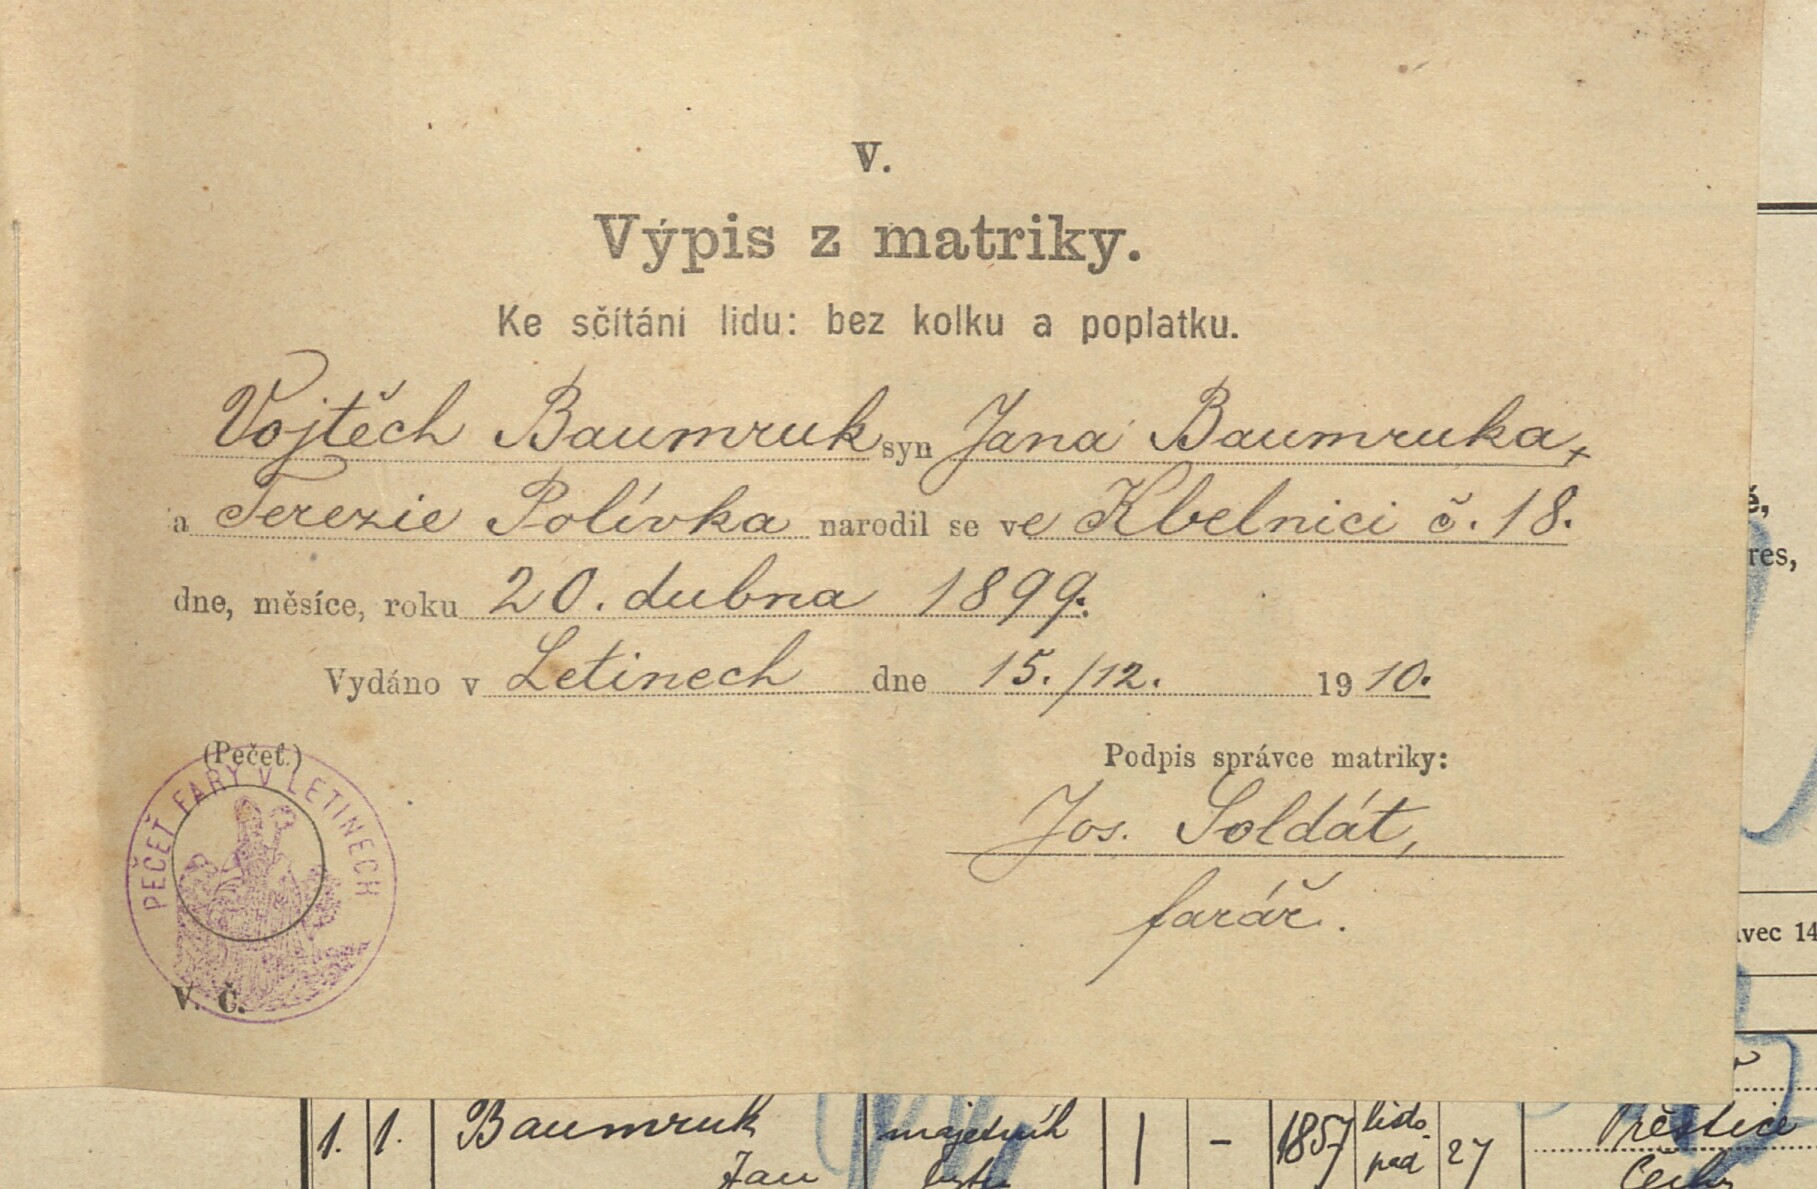 V.
Výpis z matriky.
Ke sčítání lidu: bez kolku a poplatku.
Vojtěch Baumruk syn Jana Baumruka,
a Terezie Polívka narodil se ve Kbelnici č. 18.
dne, měsíce, roku 20. dubna 1899.
Vydáno v Letinech dne 15./12. 1910.
(Pečeť.)
PEČEŤ FARY V LETINECH
Podpis správce matriky:
Jos. Soldát,
farář.
V. Č.
res,
vec 14
1. 1. Baumruk majetník 1 - 1857 listo- Přeštice
Jan bytu pad 27 Čechy